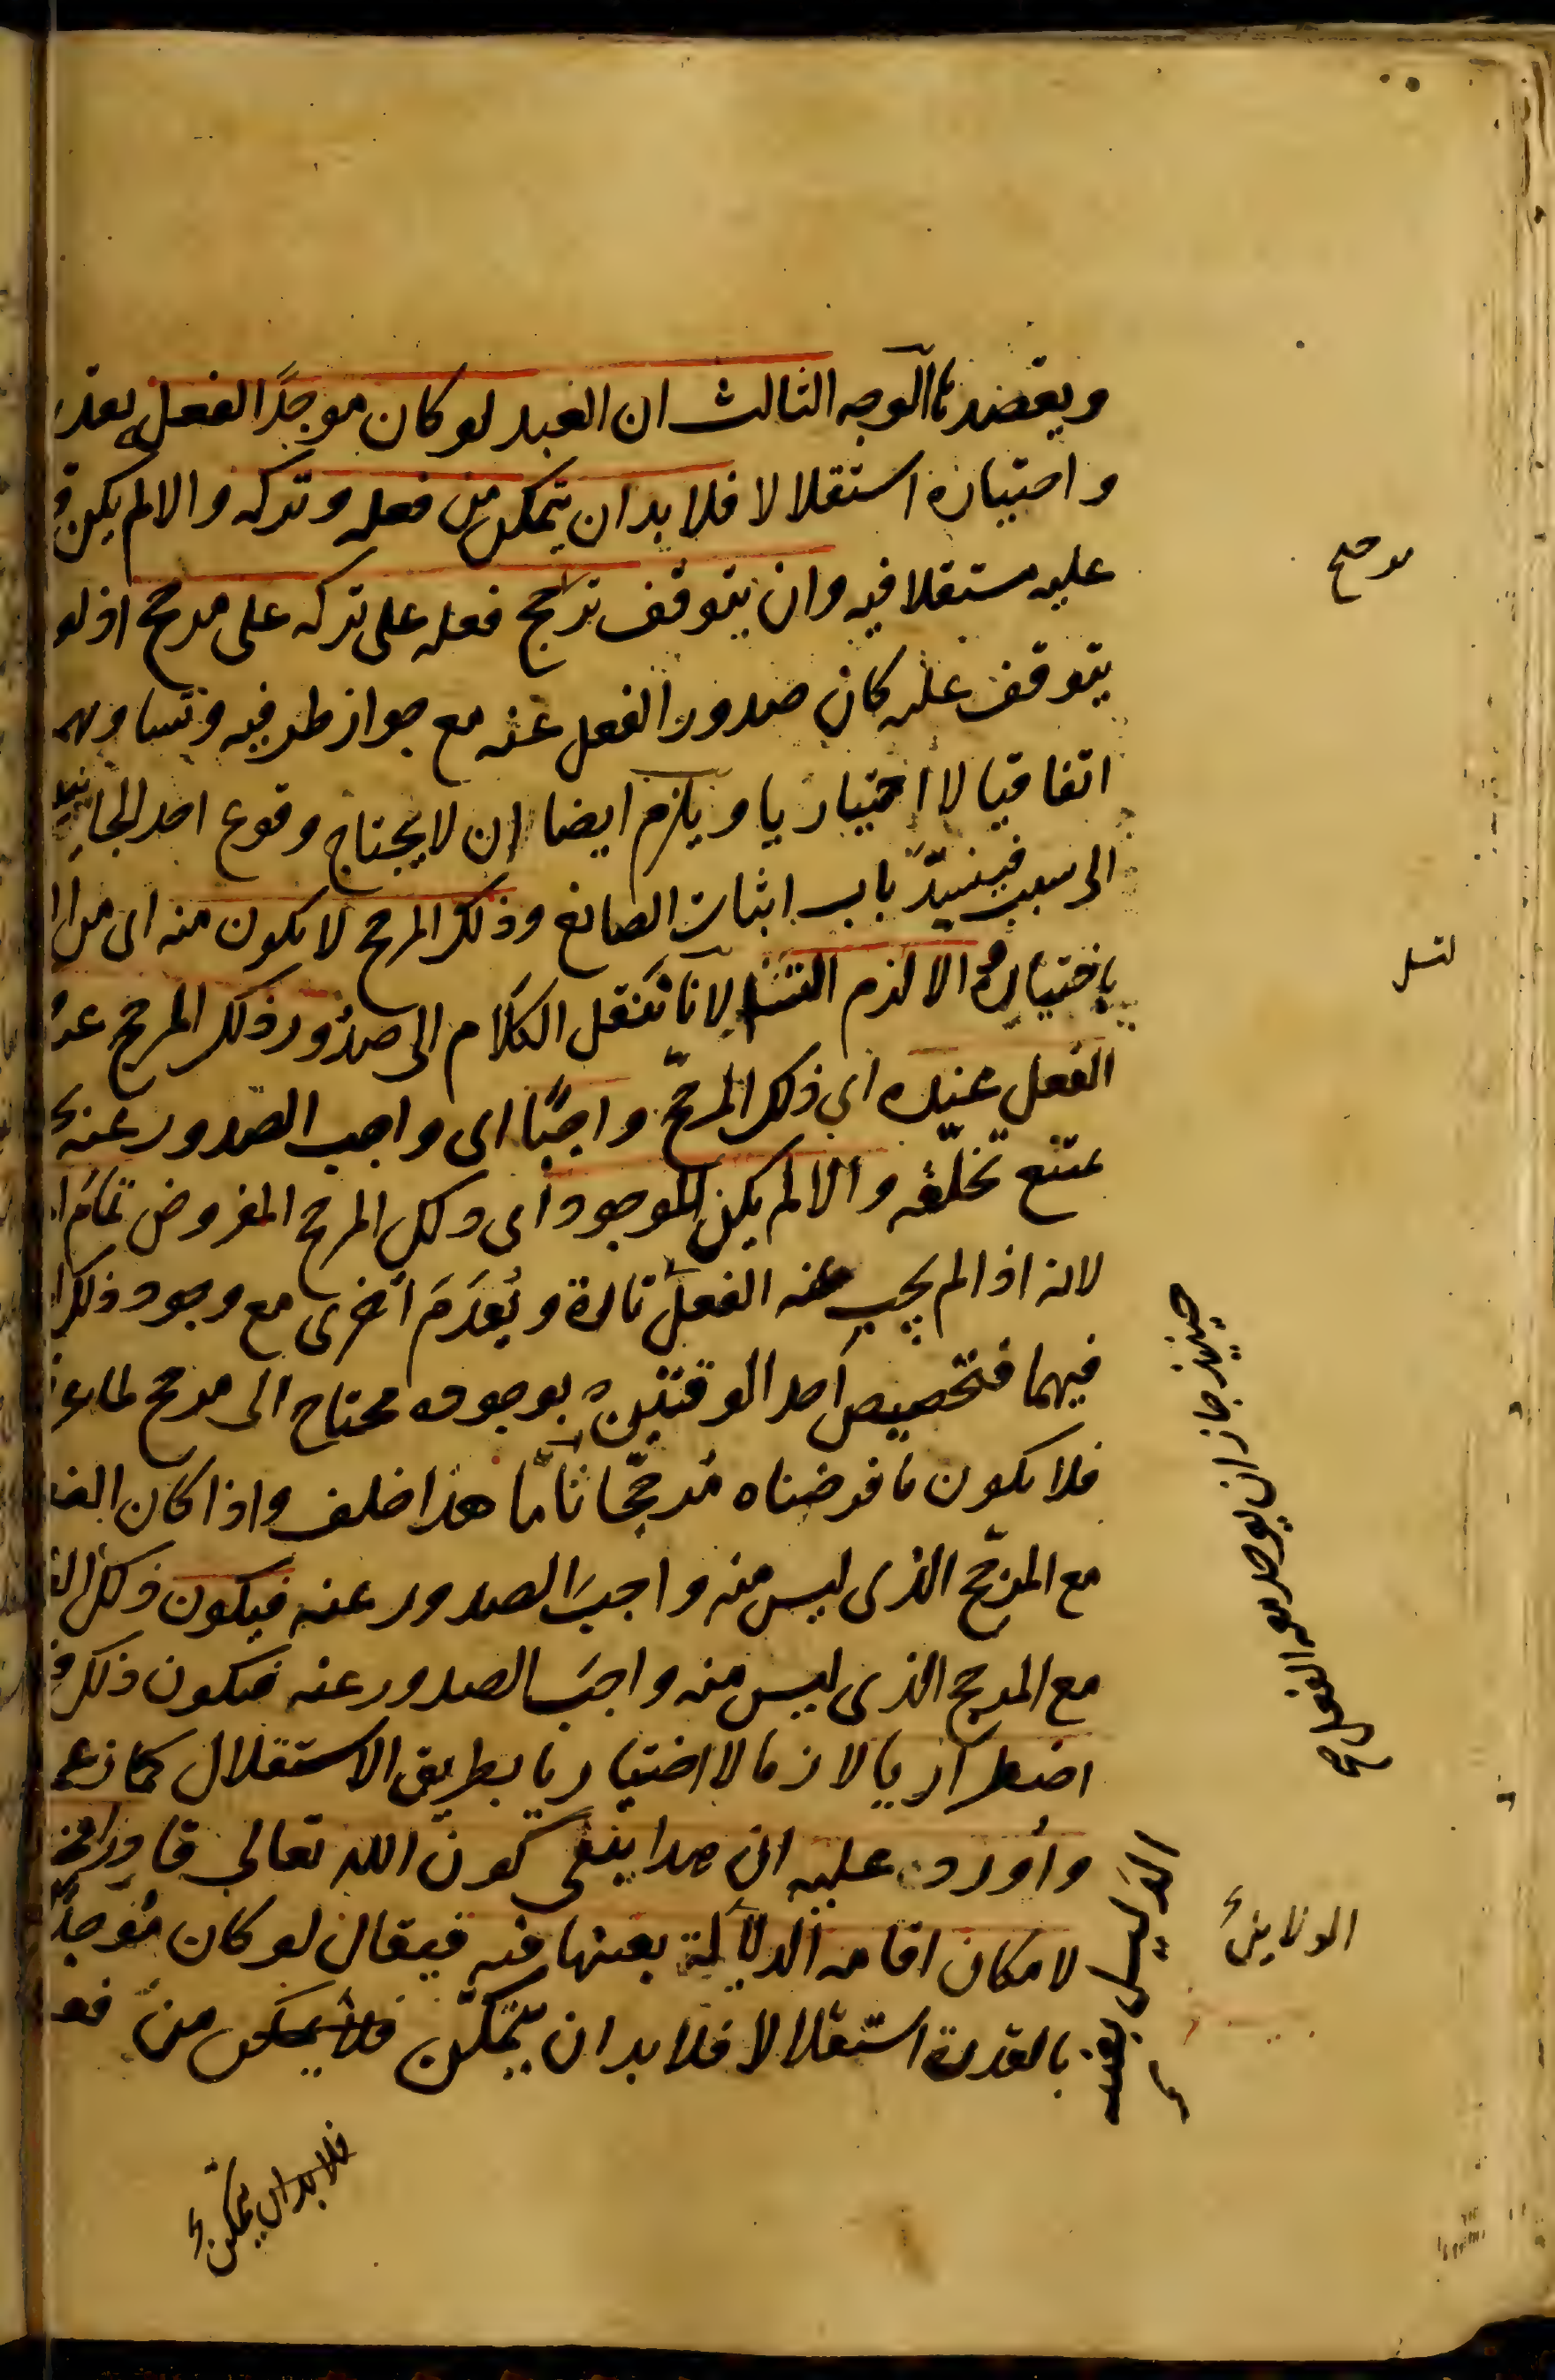 ويقصدها الوجه الثالث ان العبد لو كان موجدًا لفعله بقدر
واختياره استقلالا فلا بد ان يتمكن من فعله وتركه والا لم يكن
عليه مستقلا فيه وان يتوقف ترجح فعله على تركه على مرجح اذ لو
يتوقف عليه كان صدور الفعل عنه مع جواز طرفيه وتساويهما
اتفاقيا لا اختياريا ويلزم ايضا ان لا يحتاج وقوع احد الجانبين
الى سبب فينسدّ باب اثبات الصانع وذلك المرجح لا يكون منه اى من
باختياره والا لزم التسل لانا ننقل الكلام الى صدور ذلك المرجح عنه
الفعل عنده اى ذلك المرجّح واجبًا اى واجب الصدور عنه
يمتنع تخلّفه والا لم يكن الموجود اى ذلك المرجح المفروض تمام
لانه اذا لم يجب عنه الفعل تارة ويُعدَمَ اخرى مع وجود ذلك
فيهما فتخصيص احد الوقتين بوجوده محتاج الى مرجح لما
فلا يكون ما فرضناه مُرجّحا تامّا هذا خلف واذا كان
مع المرجّح الذى ليس منه واجبَ الصدور عنه فيكون ذلك
مع المرجح الذى ليس منه واجبَ الصدور عنه فيكون ذلك
اضطراريا لازما لا اختياريا بطريق الاستقلال كما زعم
واُورد عليه ان هذا ينفى كون اللّه تعالى قادرا
لامكان اقامة الدلالة بعينها فيه فيقال لو كان مُوجدًا
بالقدرة استقلالا فلا بد ان يتمكّن فلا يمكن من
مرجح
لتسل
حينئذ جاز ان يوجد معه الفعل
الدليل بعينه
الدلايل
فلا بد ان يتمكن